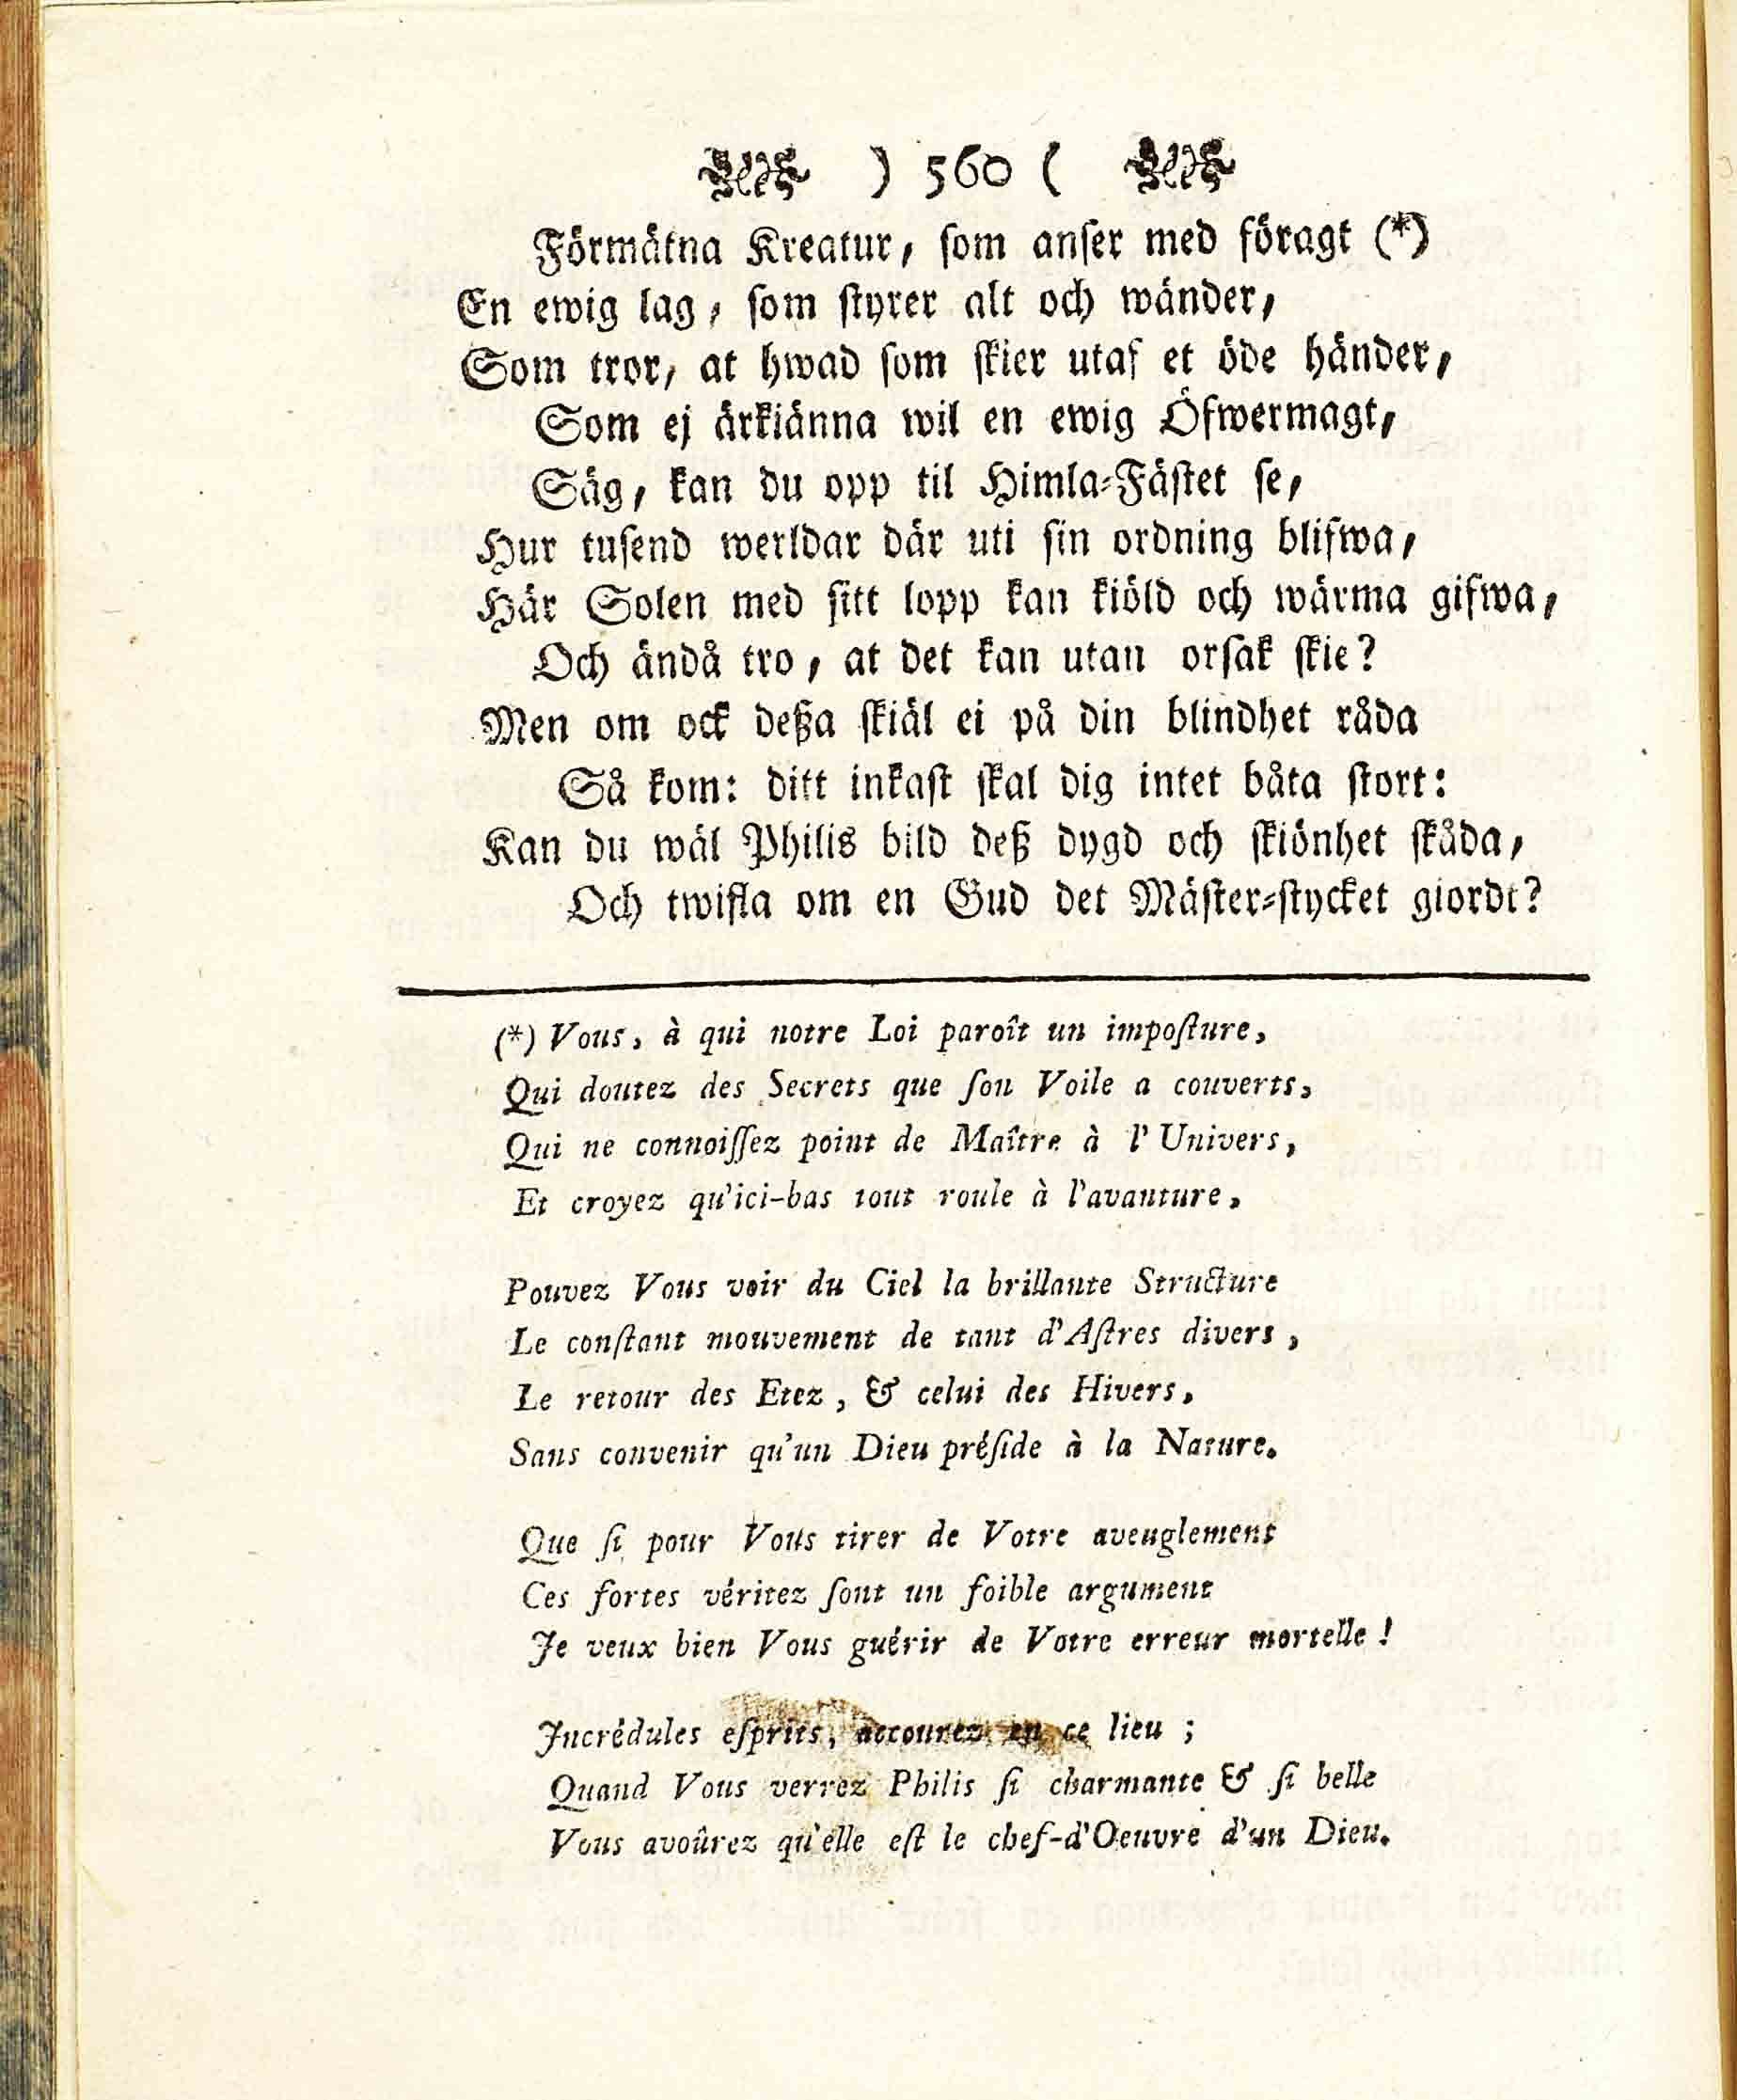 ) 560 (
Förmätna Kreatur, som anser med föragt (*)
En ewig lag, som styrer alt och wänder,
Som tror, at hwad som skier utaf et öde händer,
Som ej ärkiänna wil en ewig Öfwermagt,
Säg, kan du opp til Himla-Fästet se,
Hur tusend werldar där uti sin ordning blifwa,
Här Solen med sitt lopp kan kiöld och wärma gifwa,
Och ändå tro, at det kan utan orsak skie?
Men om ock deßa skiäl ei på din blindhet råda
Så kom: ditt inkast skal dig intet båta stort:
Kan du wäl Philis bild deß dygd och skiönhet skåda,
Och twifla om en Gud det Mäster-stycket giordt?
(*) Vous, à qui notre Loi paroît un imposture,
Qui doutez des Secrets que son Voile a couverts,
Qui ne connoissez point de Maître à l'Univers,
Et croyez qu'ici-bas tout roule à l'avanture,
Pouvez Vous voir du Ciel la brillante Structure
Le constant mouvement de tant d'Astres divers,
Le retour des Etez, & celui des Hivers,
Sans convenir qu'un Dieu préside à la Nature.
Que si pour Vous tirer de Votre aveuglement
Ces fortes véritez sont un foible argument
Je veux bien Vous guérir de Votre erreur mortelle!
Incrédules esprits, accourez en ce lieu;
Quand Vous verrez Philis si charmante & si belle
Vous avoûrez qu'elle est le chef-d'Oeuvre d'un Dieu.